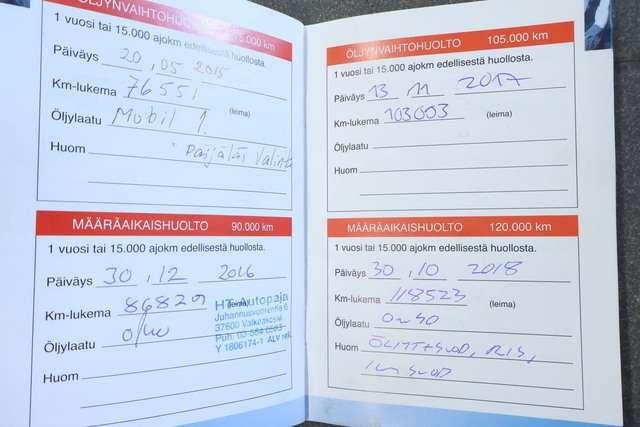 ÖLJYNVAIHTOHUOLTO 75.000 km
1 vuosi tai 15.000 ajokm edellisestä huollosta.
Päiväys 20 . 05 2015
Km-lukema 76551 (leima)
Öljylaatu Mobil 1
Huom
MÄÄRÄAIKAISHUOLTO 90.000 km
1 vuosi tai 15.000 ajokm edellisestä huollosta.
Päiväys 30 . 12 2016
Km-lukema 86829 (leima)
HT-Autopaja
Juhannusvuorentie 6
37600 Valkeakoski
Puh. 03-584 0583
Y 1806174-1 ALV rek.
Öljylaatu
Huom
ÖLJYNVAIHTOHUOLTO 105.000 km
1 vuosi tai 15.000 ajokm edellisestä huollosta.
Päiväys 13 11 2017
Km-lukema 103003 (leima)
Öljylaatu
Huom
MÄÄRÄAIKAISHUOLTO 120.000 km
1 vuosi tai 15.000 ajokm edellisestä huollosta.
Päiväys 30 . 10 2018
Km-lukema 118523 (leima)
Öljylaatu 0w40
Huom